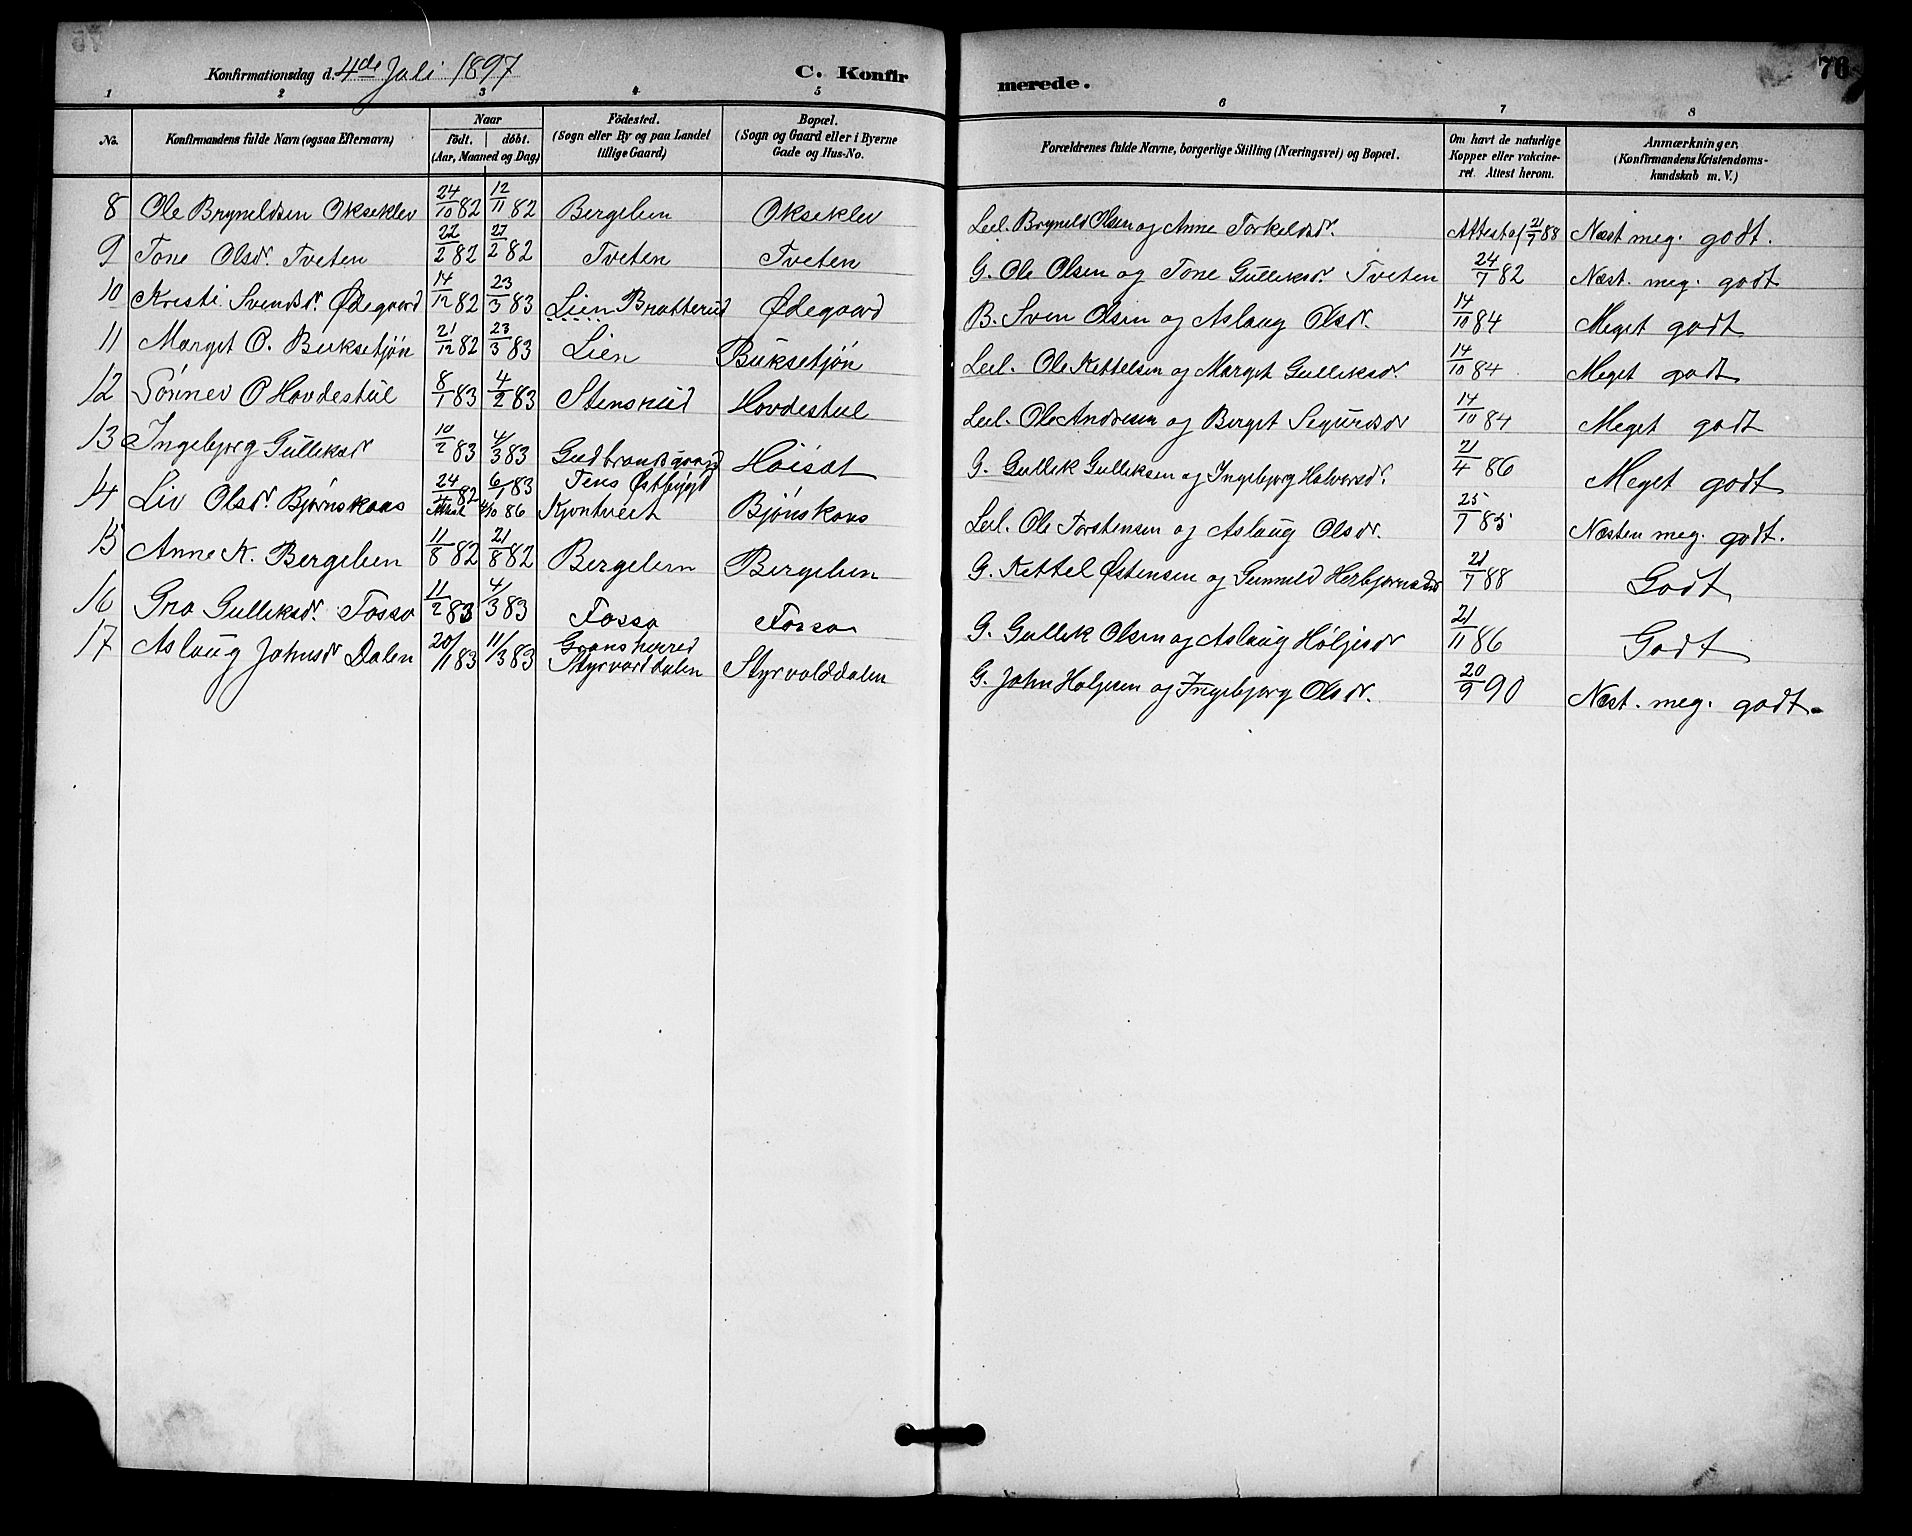 Konfirmationsdag d. 4de Juli 1897
C. Konfir
merede.
76
1 2 3 4 5 6 7 8
No.
Konfirmandens fulde Navn (ogsaa Efternavn)
Naar
født. | døbt.
(Aar, Maaned og Dag)
Fødested.
(Sogn eller By og paa Landet
tillige Gaard)
Bopæl.
(Sogn og Gaard eller i Byerne
Gade og Hus-No.
Forældrenes fulde Navne, borgerlige Stilling (Næringsvei) og Bopæl.
Om havt de naturlige
Kopper eller vakcine-
ret. Attest herom.
Anmærkninger.
(Konfirmandens Kristendoms-
kundskab m. V.)
8 Ole Bryneldsen Okseklev 24/10 82 12/11 82 Bergelien Okseklev Leil. Bryneld Olsen og Anne Torkeldsdr. Attest af 21/7 88 Næst meg. godt.
9 Tone Olsdr. Tveten 22/2 82 27/2 82 Tveten Tveten G. Ole Olsen og Tone Gulliksdr. Tveten 24/7 82 Næst. meg. godt
10 Kristi Svensdr. Ødegaard 14/12 82 23/3 83 Lien Bratterud Ødegaard B. Sven Olsen og Aslaug Olsdr. 14/10 84 Meget godt
11 Marget O. Buksetjøn 21/12 82 23/3 83 Lien Buksetjøn Leil. Ole Kettelsen og Marget Gulliksdr. 14/10 84 Meget godt
12 Sønnev O Hovdestul 8/1 83 4/2 83 Stensrud Hovdestul Leil. Ole Andresen og Berget Segurdsdr 14/10 84 Meget godt
13 Ingebjørg Gulliksdr 10/2 83 4/3 83 Gudbrandsgaard Høisæt G. Gullik Gulliksen og Ingebjørg Halvorsdr. 21/4 86 Meget godt
14 Liv Olsdr. Bjørnskaas 24/ 82 6/1 83 Tins Østbygd
Attest 4/10 86 Kjøntveit Bjønskaas Leil. Ole Torstensen og Aslaug Olsdr. 25/7 85 Næsten meg. godt.
15 Anne K. Bergelien 11/8 82 21/8 82 Bergelien Bergelien G. Kettel Østensen og Gunnild Herbjørnsdr 21/7 88 Godt
16 Gro Gulliksdr. Fosso 11/2 83 4/3 83 Fosso Fosso G. Gullik Olsen og Aslaug Høljesdr 21/11 86 Godt
17 Aslaug Johnsdr Dalen 20/1 83 11/3 83 Gransherred
Styrvorddalen Styrvolddalen G. John Høljesen og Ingebjørg Olsdr. 20/9 90 Næst. meg. godt.